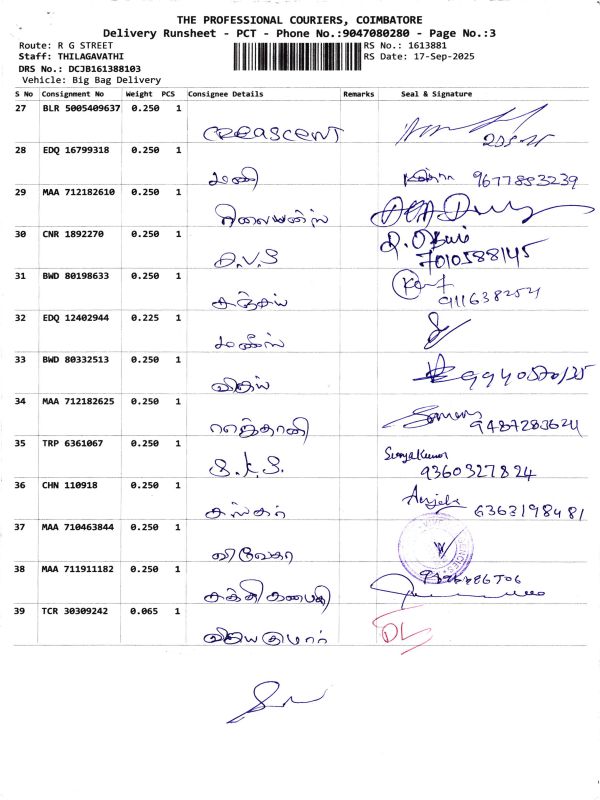 THE PROFESSIONAL COURIERS, COIMBATORE
Delivery Runsheet - PCT - Phone No.:9047080280 - Page No.:3
Route: R G STREET
RS No.: 1613881
Staff: THILAGAVATHI
RS Date: 17-Sep-2025
DRS No.: DCJB161388103
Vehicle: Big Bag Delivery
S No Consignment No Weight PCS Consignee Details Remarks Seal & Signature
27 BLR 5005409637 0.250 1
CREASCENT
28 EDQ 16799318 0.250 1
மணி 9677853239
29 MAA 712182610 0.250 1
ரிலையன்ஸ்
30 CNR 1892270 0.250 1
D.V.S 7010588145
31 BWD 80198633 0.250 1
சஞ்சய் 9116382521
32 EDQ 12402944 0.225 1
மணீஸ்
33 BWD 80332513 0.250 1
விஜய் 9940520135
34 MAA 712182625 0.250 1
9487283624
35 TRP 6361067 0.250 1
S.K.S. SuryaKumar
9360327824
36 CHN 110918 0.250 1
கஸ்தூர் Anjela 6363198481
37 MAA 710463844 0.250 1
விவேகா
38 MAA 711911182 0.250 1
சக்தி கணபதி
39 TCR 30309242 0.065 1
விஜயகுமார் DL